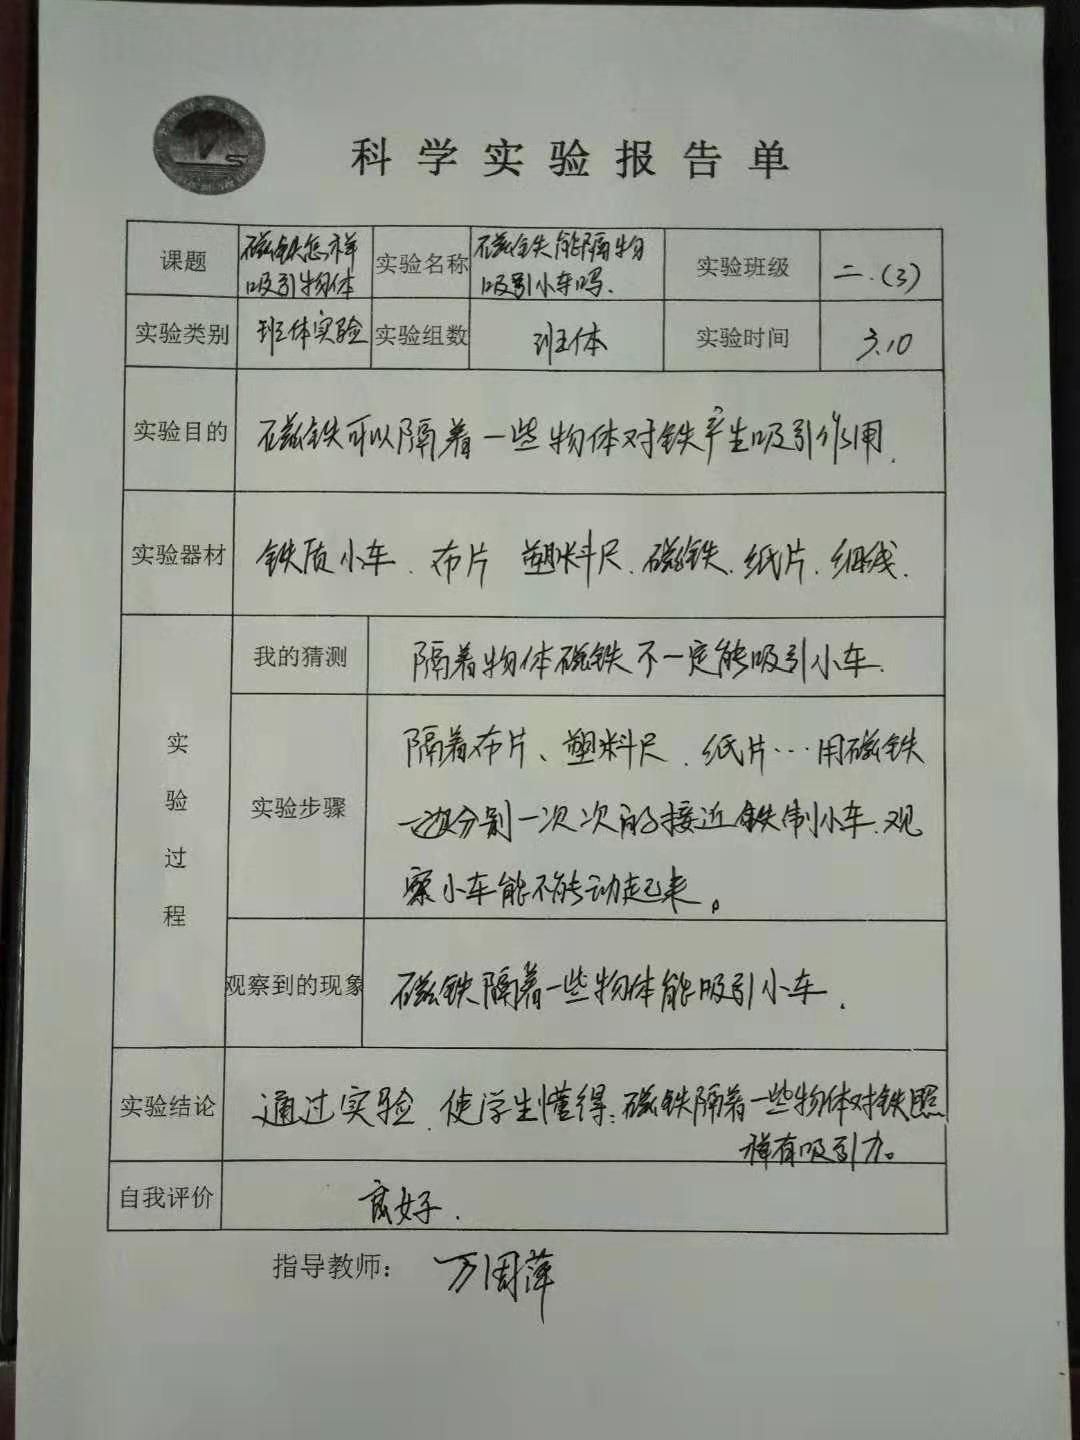 科学实验报告单
课题
磁铁怎样
吸引物体
实验名称
磁铁能隔物
吸引小车吗.
实验班级
二.(3)
实验类别
班体实验
实验组数
班体
实验时间
3.10
实验目的
磁铁可以隔着一些物体对铁产生吸引作用.
实验器材
铁质小车、布片 塑料尺、磁铁、纸片、细线.
实验过程
我的猜测
隔着物体磁铁不一定能吸引小车.
实验步骤
隔着布片、塑料尺、纸片…用磁铁
一边分别一次次的接近铁制小车.观
察小车能不能动起来。
观察到的现象
磁铁隔着一些物体能吸引小车.
实验结论
通过实验、使学生懂得:磁铁隔着一些物体对铁照
样有吸引力。
自我评价
良好.
指导教师： 万周萍